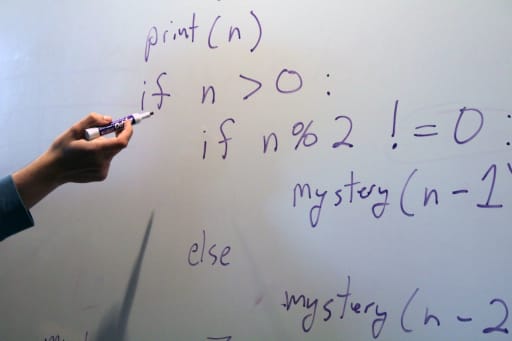 print(n)
if n > 0 :
if n % 2 != 0 :
mystery(n - 1)
else
mystery(n - 2